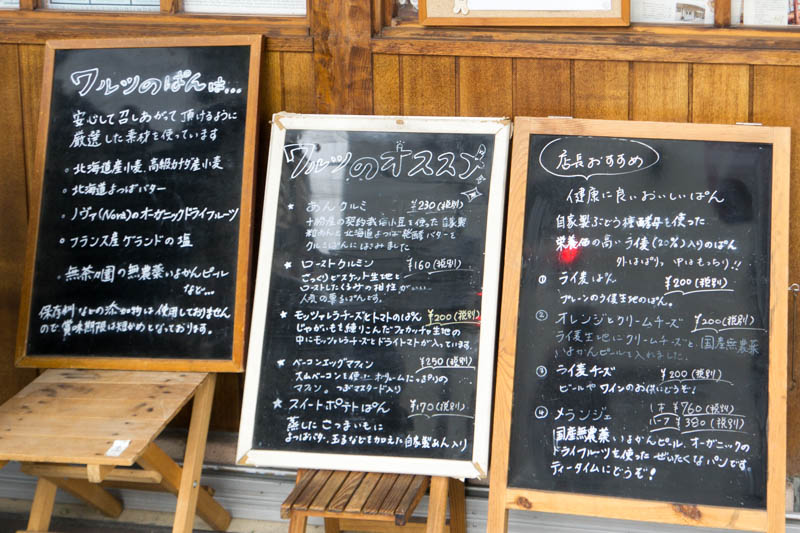 ワルツのぱんは...
安心して召しあがって頂けるように
厳選した素材を使っています
・北海道産小麦、高級カナダ産小麦
・北海道よつばバター
・ノヴァ(Nova)のオーガニックドライフルーツ
・フランス産ゲランドの塩
・無茶々園の無農薬いよかんピール
など...
保存料などの添加物は使用しておりません
ので賞味期限は短かめとなっております。
ワルツのオススメ
★ あんクルミ ¥230(税別)
十勝産の契約栽培小豆を使った自家製
粒あんと北海道よつば発酵バターを
クルミぱんにはさみました
★ ローストクルミン ¥160(税別)
ざっくりビスケット生地と
ローストしたくるみの相性が
人気の菓子ぱんです
★ モッツァレラチーズとトマトのぱん ¥200(税別)
じゃがいもを練りこんだフォカッチャ生地の
中にモッツァレラチーズとドライトマトが入っています。
★ ベーコンエッグマフィン ¥250(税別)
スムベーコンを使ったボリュームたっぷりの
マフィン。つぶマスタード入り
★ スイートポテトぱん ¥170(税別)
蒸したさつまいもに
よつばバター、玉子などを加えた自家製あん入り
店長おすすめ
健康に良いおいしいぱん
自家製ぶどう種酵母を使った
栄養価の高いライ麦(20%)入りのぱん
外はぱりっ、中はもっちり!!
① ライ麦ぱん ¥200(税別)
プレーンのライ麦生地のぱん。
② オレンジとクリームチーズ ¥200(税別)
ライ麦生地にクリームチーズと、国産無農薬
いよかんピールを入れました。
③ ライ麦チーズ ¥200(税別)
ビールやワインのお供にどうぞ!
④ メランジェ 1本 ¥760(税別)
ハーフ ¥380(税別)
国産無農薬いよかんピール、オーガニックの
ドライフルーツを使ったぜいたくなパンです。
ティータイムにどうぞ!